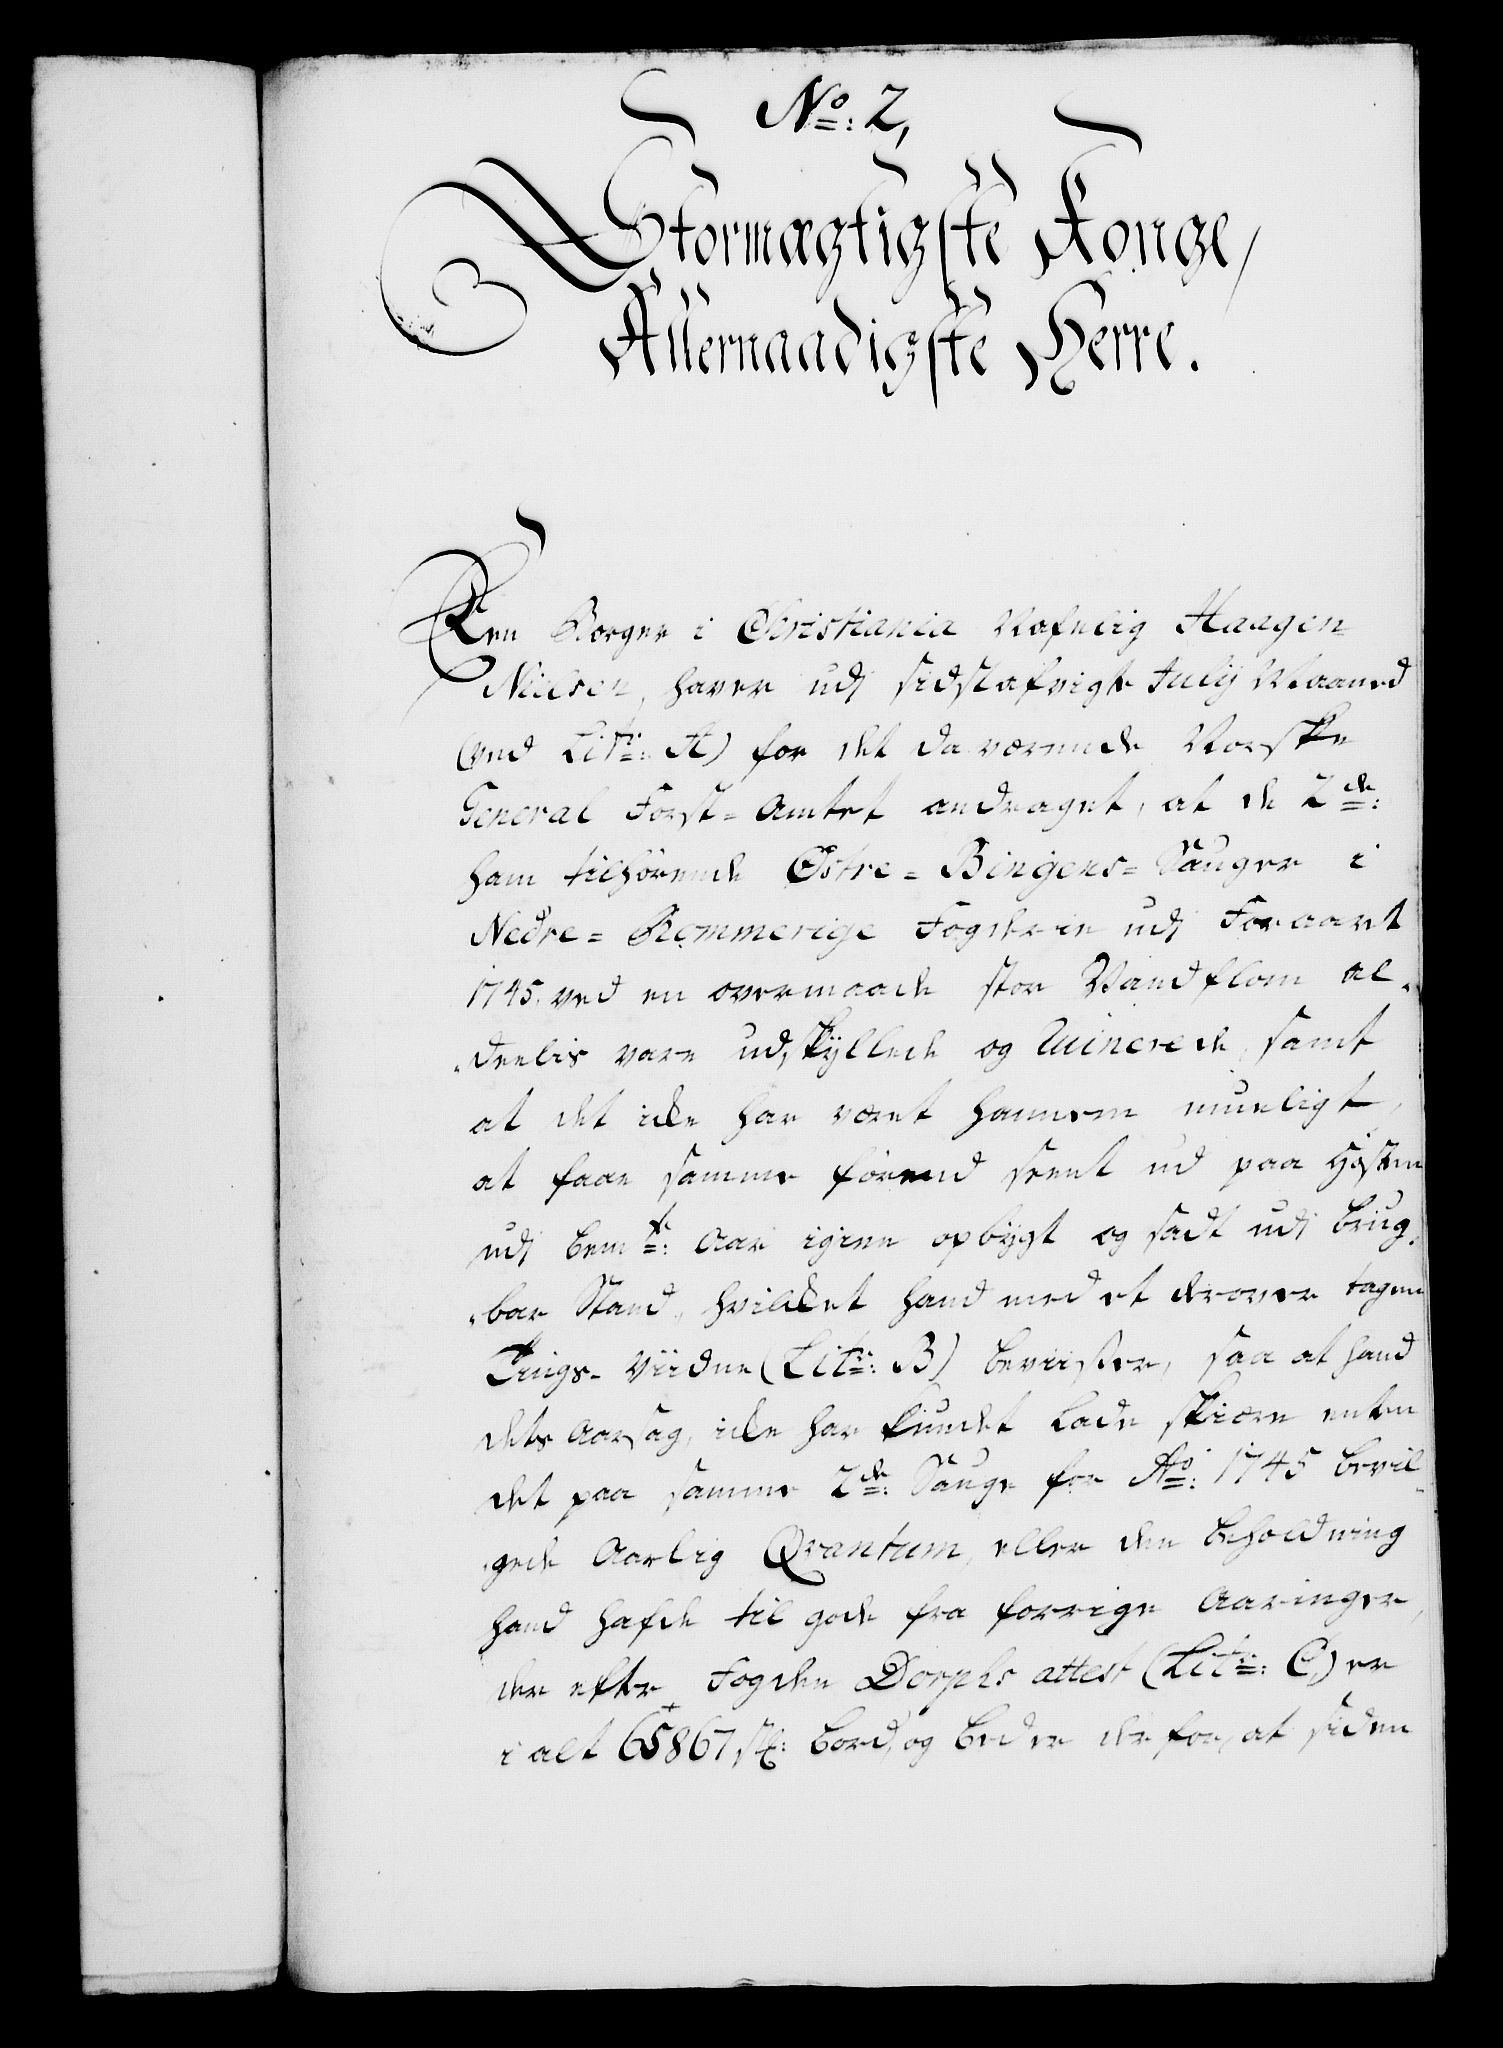 No: 2,
Stormægtigste Konge,
Allernaadigste Herre.
Een Borger i Christiania Nafnlig Haagen
Nielsen, haver udj sidstafvigte July Maaned
(ved Litr: A) for det da værende Norske
General Forst-Amtet andraget, at de 2de:
ham tilhørende Østre-Bingens-Sauger i
Nedre-Rommerige Fogderie udj Foraaret
1745. ved en overmaade stor Vandflom al-
deelis vare udskyllede og Ruinerede, samt
at det icke har været hannem mueligt,
at faae samme førend seent ud paa Høsten
udj bemte: Aar igien opbygt og sadt udj brug-
bar Stand, hvilcket hand med et derover tagen
Tings-Viidne (Litr: B) beviiser, saa at hand
dets Aarsag, icke har kundet lade skiære enten
det paa samme 2de: Sauge for Ao: 1745 bevil-
gede Aarlig Qvantum, eller den beholdning
hand hafde til gode fra forrige Aaringer,
der efter Fogden Dorphs attest (Litr: C,) er
i alt 65867 st: bord, og beder derfor, at siden